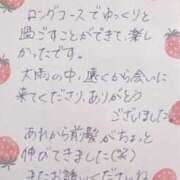 ロングコースでゆっくりと
過ごすことができて、楽し
かったです。
大雨の中、遠くから会いに
来てくださり、ありがとう
ございました
あれから前髪がちょっと
伸びてきました(笑)
またお誘いくださいね